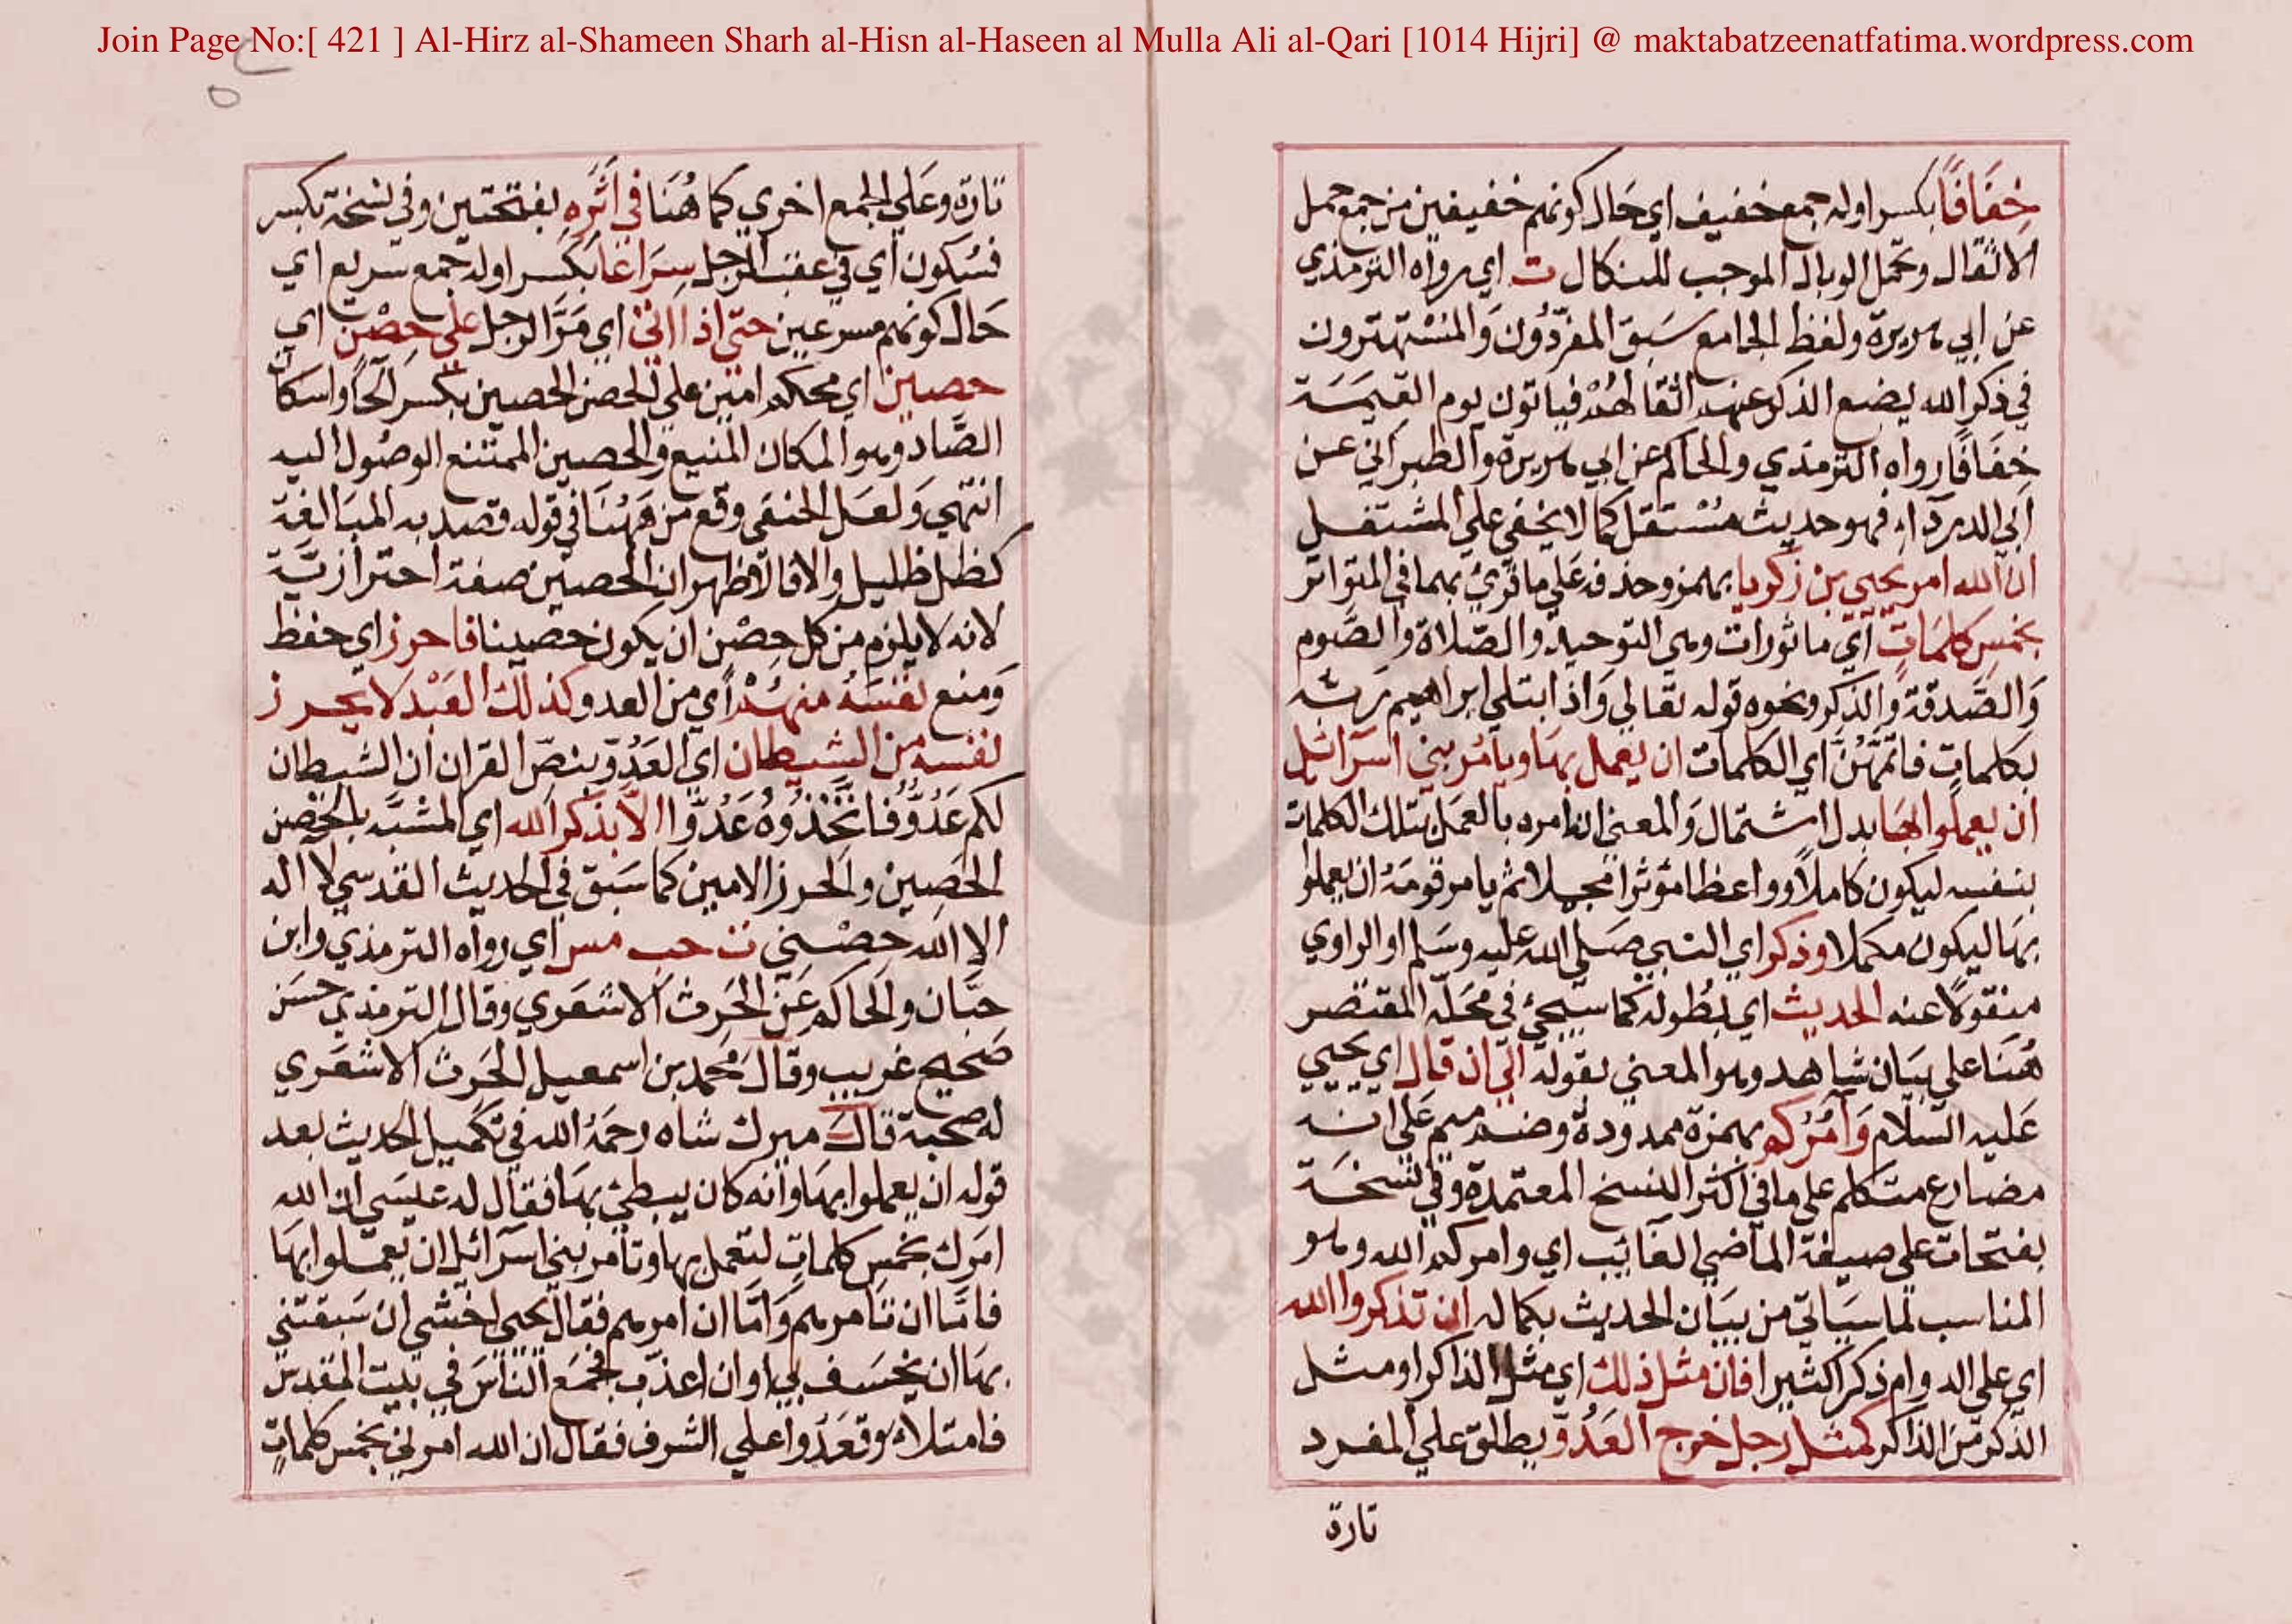 Join Page No:[ 421 ] Al-Hirz al-Shameen Sharh al-Hisn al-Haseen al Mulla Ali al-Qari [1014 Hijri] @ maktabatzeenatfatima.wordpress.com
خِفَافًا بكسر اوله جمع خفيف اي حَال كونهم خفيفين من جمع حمل
الاثقال وتحمل الوبال الموجب للنكال ت اي رواه الترمذي
عن ابي هريرة ولفظ الجامع سَبَق المفرّدُون وَالمُسْتهترون
في ذكر الله يضع الذكر عنهم اثقالهُمْ فياتون يوم القيمَة
خِفَافًا رواه الترمذي والحاكم عن ابي هريرة والطبراني عن
ابي الدرداء فهو حديث مُسْتقل كما لا يخفي علي المشتغل
ان الله امر يحيي بن زكريا بهمز وحذفه عَلي ما قرئ بهما في المتواتر
بخمسِ كلمَاتٍ اي ماثورات وهي التوحيد والصّلاة والصَّوم
وَالصَّدقة والذكر ونحوه قوله تعَالي وَاذ ابتلي ابراهيم ربّه
بكلماتٍ فاتمّهُنَّ اي الكلمات ان يعمل بهَا ويامُر بني اسرائيل
ان يعملوا بهَا بدل اشتمال وَالمعني انه امره بالعمَل بتلك الكلمات
بنفسه ليكون كاملًا وواعظا مؤثرا مجملا ثم يامر قومَهُ ان يعملوا
بهَا ليكون مكملا وذكر اي النبي صَلي الله عليه وسَلم او الراوي
منقولًا عنه الحديث اي بطُوله كما سيجئ في محَلّه المقتصر
هُنَا علي بيَان شاهد وهو المعني بقوله الي ان قال اي يحيي
عَليه السّلام وَآمُرُكم بهمزة ممدودة وضم ميم عَلي انه
مضارع متكلم علي ما في اكثر النسخ المعتمدة وفي نسخَة
بفتحات علي صيغة الماضي الغائب اي وامركم الله وهو
المناسب لما سيَاتي من بيَان الحديث بكماله ان تذكروا الله
اي علي الدوام ذكرا كثيرا فان مثل ذلك اي مثل الذاكر او مثل
الذكر من الذاكر كمثل رجل خرج العَدُوّ يطلق علي المفرد
تارة
تارة وعَلي الجمع اخري كما هُنَا في اَثَرِهِ بفتحتين وفي نسخة بكسر
فسُكون اي في عقب الرجل سِرَاعًا بكسر اوله جمع سريع اي
حَال كونهم مسرعين حتي اذا اتي اي مَرَّ الرجل علي حِصْن اي
حصين اي محكم امين علي الحصن الحصين بكسر الحَا واسكان
الصَّاد وهو المكان المنيع والحصين الممتنع الوصُول اليه
انتهي وَلعَل الحنفي وقع من هَهُنَا في قوله قصد به المبَالغة
كظل ظليل والا فالاظهر ان الحصين صفة احترازيَّة
لانه لا يلزم من كل حِصْن ان يكون حَصينا فاحرز اي حفظ
وَمنع نفسَهُ منهُمْ اي من العدو وكذلك العَبْد لا يحرز
نفسه من الشيطان اي العَدُوّ بنصّ القران ان الشيطان
لكم عَدُوٌّ فَاتَّخِذُوهُ عَدُوًّا الا بذكر الله اي المشبّه بالحِصْن
الحَصِين والحرز الامين كما سَبَق في الحديث القدسي لا اله
الا الله حصْني ت حب مس اي رواه الترمذي وابن
حبَّان والحَاكم عَن الحَرث الاشعَري وقال الترمذي حسَن
صَحيح غريب وقال محمد بن اسمعيل الحَرث الاشعَري
له صحبة قال ميرك شاه رحمَهُ الله في تكميل الحديث بعد
قوله ان يعملوا بهَا وانه كان يبطئ بهَا فقال له عيسَي ان الله
امرك بخمسِ كلماتٍ لتعمل بها وتامر بني اسرائيل ان يعمَلوا بهَا
فامّا ان تامرهم وَامّا ان امرهم فقال يحيي اخشي ان سَبقتني
بهَا ان يخسَف بي او ان اعذب فجمَع الناسَ في بيت المقدس
فامتلاء وقعَدُوا علي الشرف فقال ان الله امرني بخمس كلماتٍ